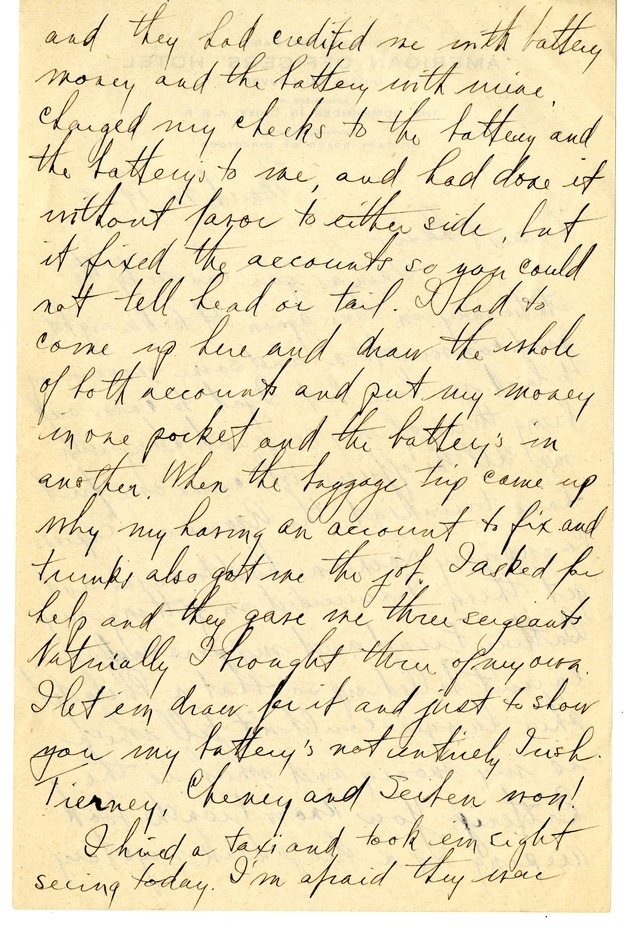 and they had credited me with battery
money and the battery with mine,
charged my checks to the battery and
the battery's to me, and had done it
without favor to either side, but
it fixed the accounts so you could
not tell head or tail. I had to
come up here and draw the whole
of both accounts and put my money
in one pocket and the battery's in
another. When the baggage trip came up
why my having an account to fix and
trunks also got me the job. I asked for
help and they gave me three sergeants
Naturially I brought three of my own.
I let em draw for it and just to show
you my battery's not entirely Irish.
Tierney, Cheney and won!
I hired a taxi and took em sight
seeing today. I'm afraid they were
AMERICAN OFFICERS' HOTEL